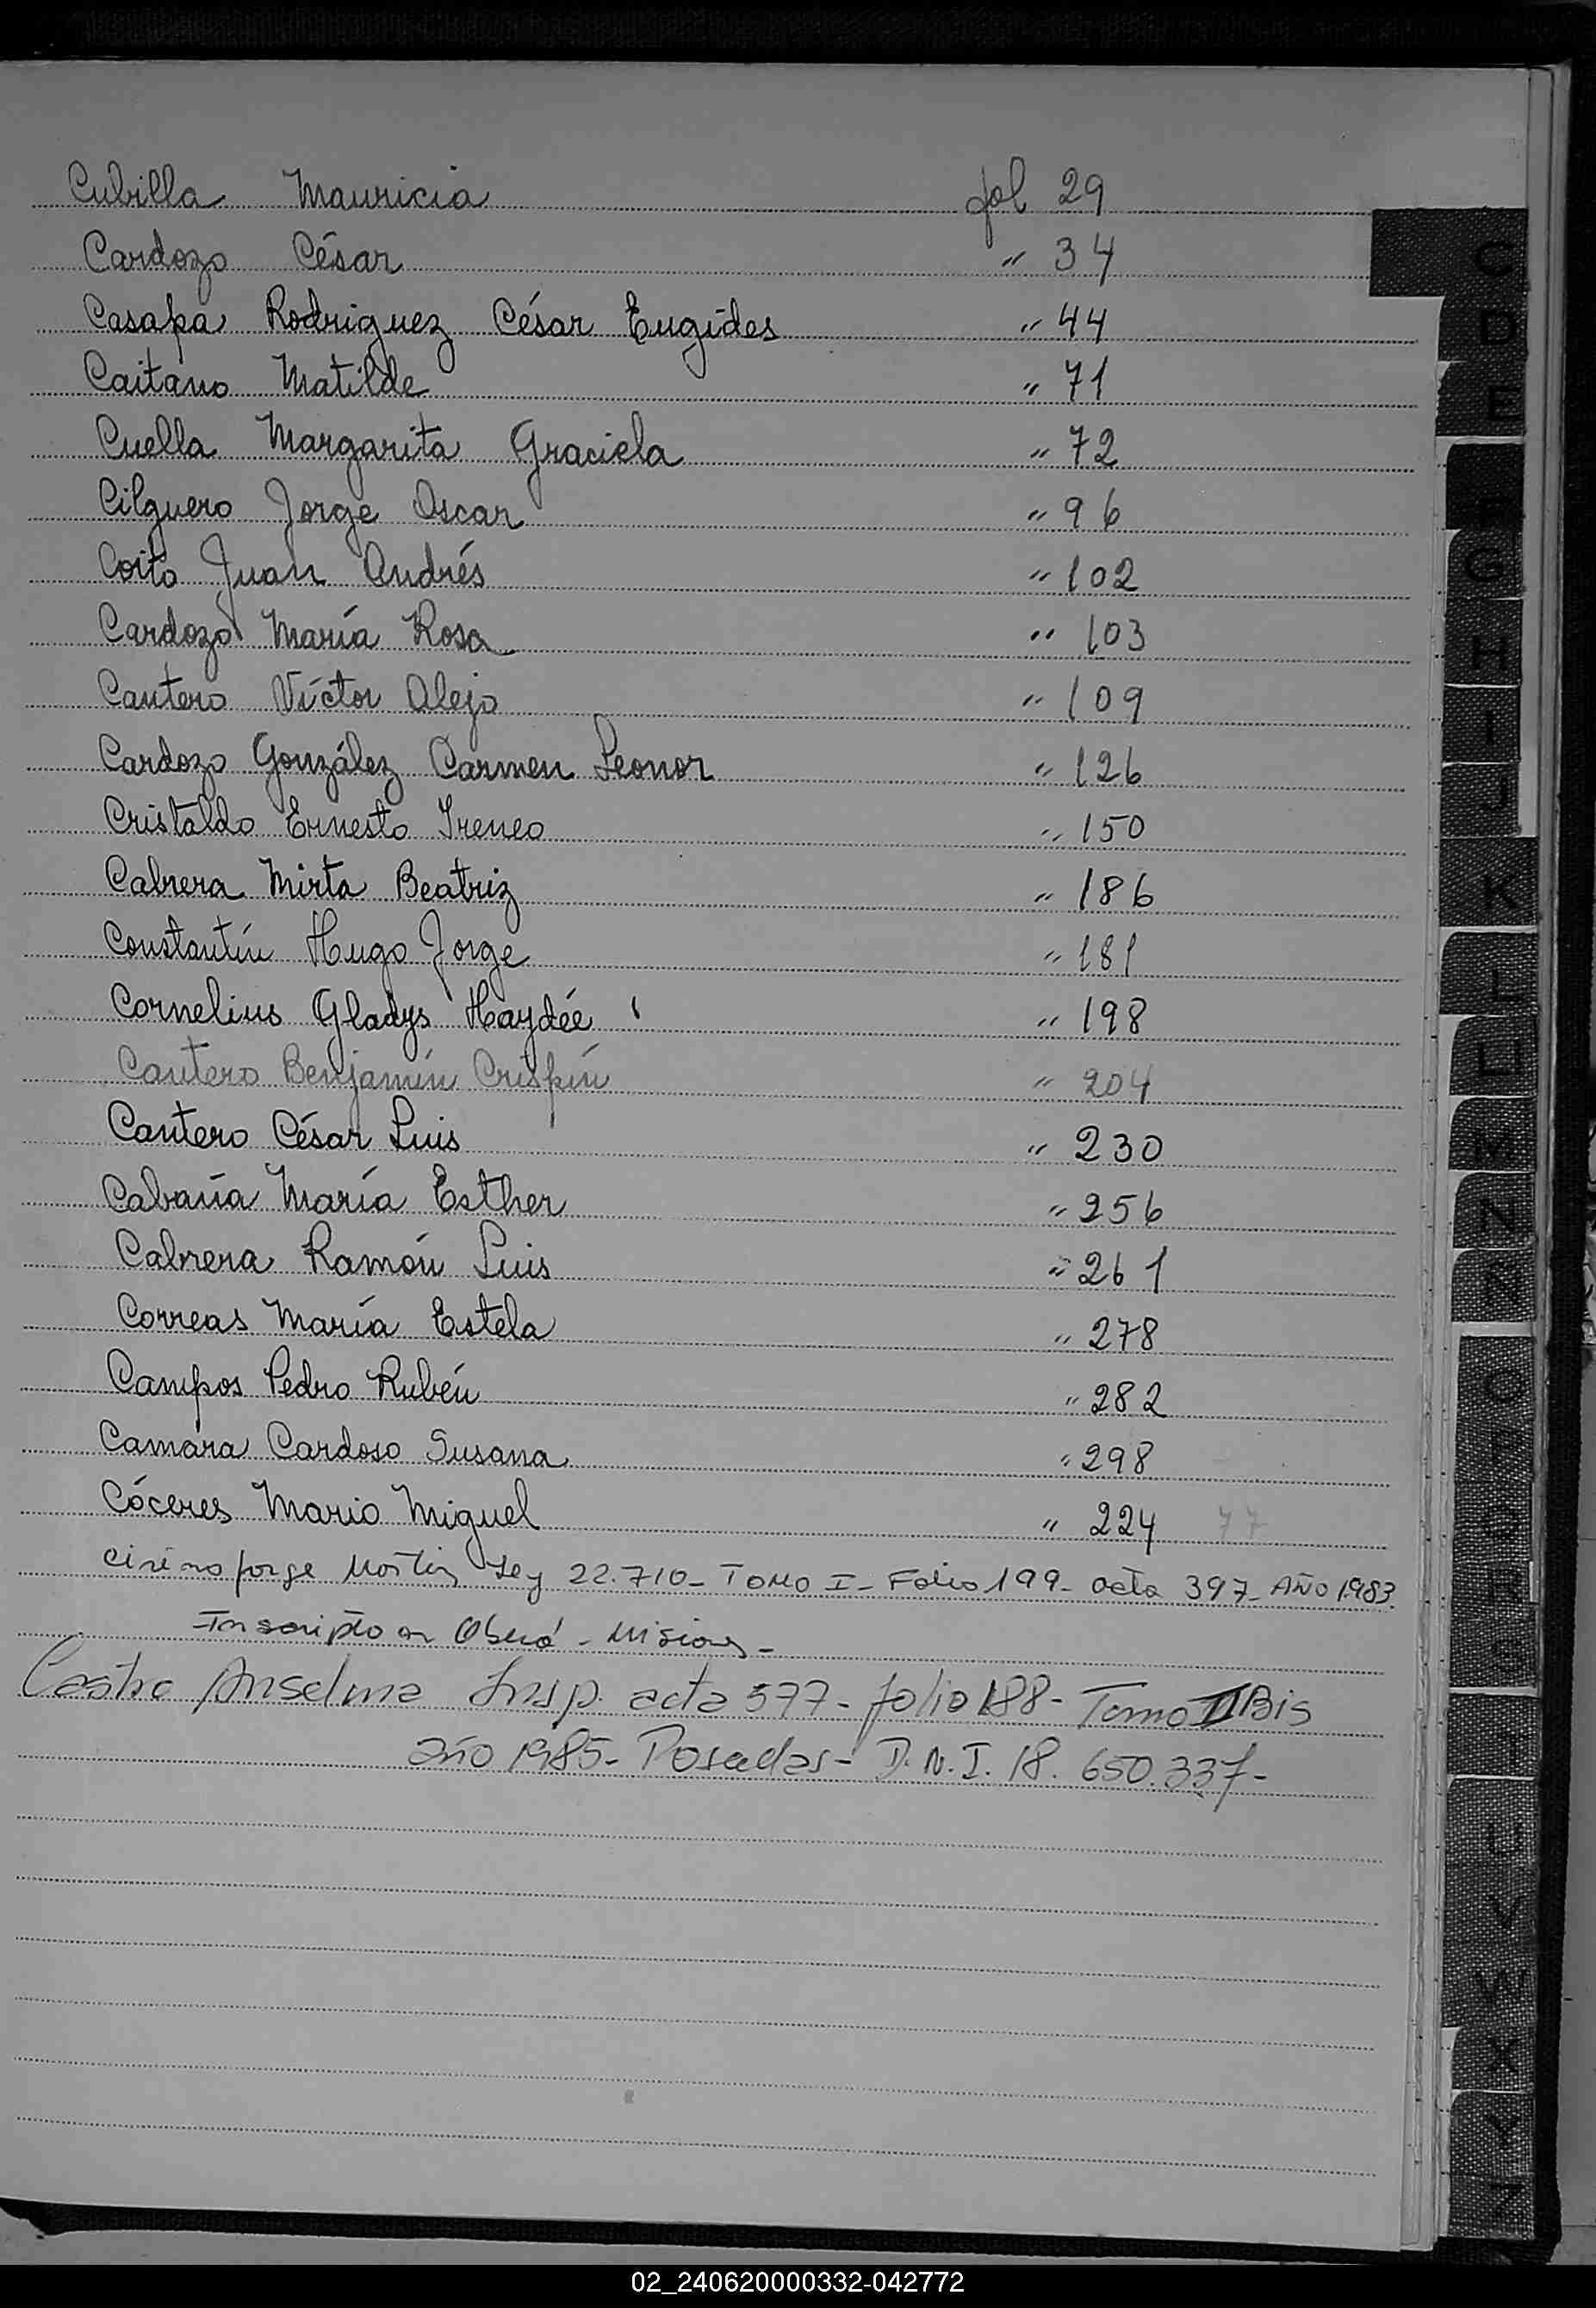 Cubilla Mauricia fol 29
Cardozo César " 34
Casapa Rodriguez César Eugides " 44
Caitano Matilde " 71
Cuella Margarita Graciela " 72
Cilguero Jorge Oscar " 96
Coito Juan Andrés " 102
Cardozo María Rosa " 103
Cantero Víctor Alejo " 109
Cardozo González Carmen Leonor " 126
Cristaldo Ernesto Ireneo " 150
Cabrera Mirta Beatriz " 186
Constantín Hugo Jorge " 181
Cornelius Gladys Haydée " 198
Cantero Benjamín Crispín " 204
Cantero César Luis " 230
Cabaña María Esther " 256
Cabrera Ramón Luis " 261
Correas María Estela " 278
Campos Pedro Rubén " 282
Camara Cardoso Susana " 298
Cóceres Mario Miguel " 224 77
Jorge Martin Ley 22.710- Tomo I- Folio 199- acta 397- AÑO 1983.
Inscripto en Oberá - Misiones -
Castro Anselma Insp. acta 577- folio 188- Tomo II Bis
año 1985- Posadas- D.N.I. 18.650.337-
C
D
E
F
G
H
I
J
K
L
LL
M
N
Ñ
O
P
Q
R
S
T
U
V
W
X
Y
Z
02_240620000332-042772